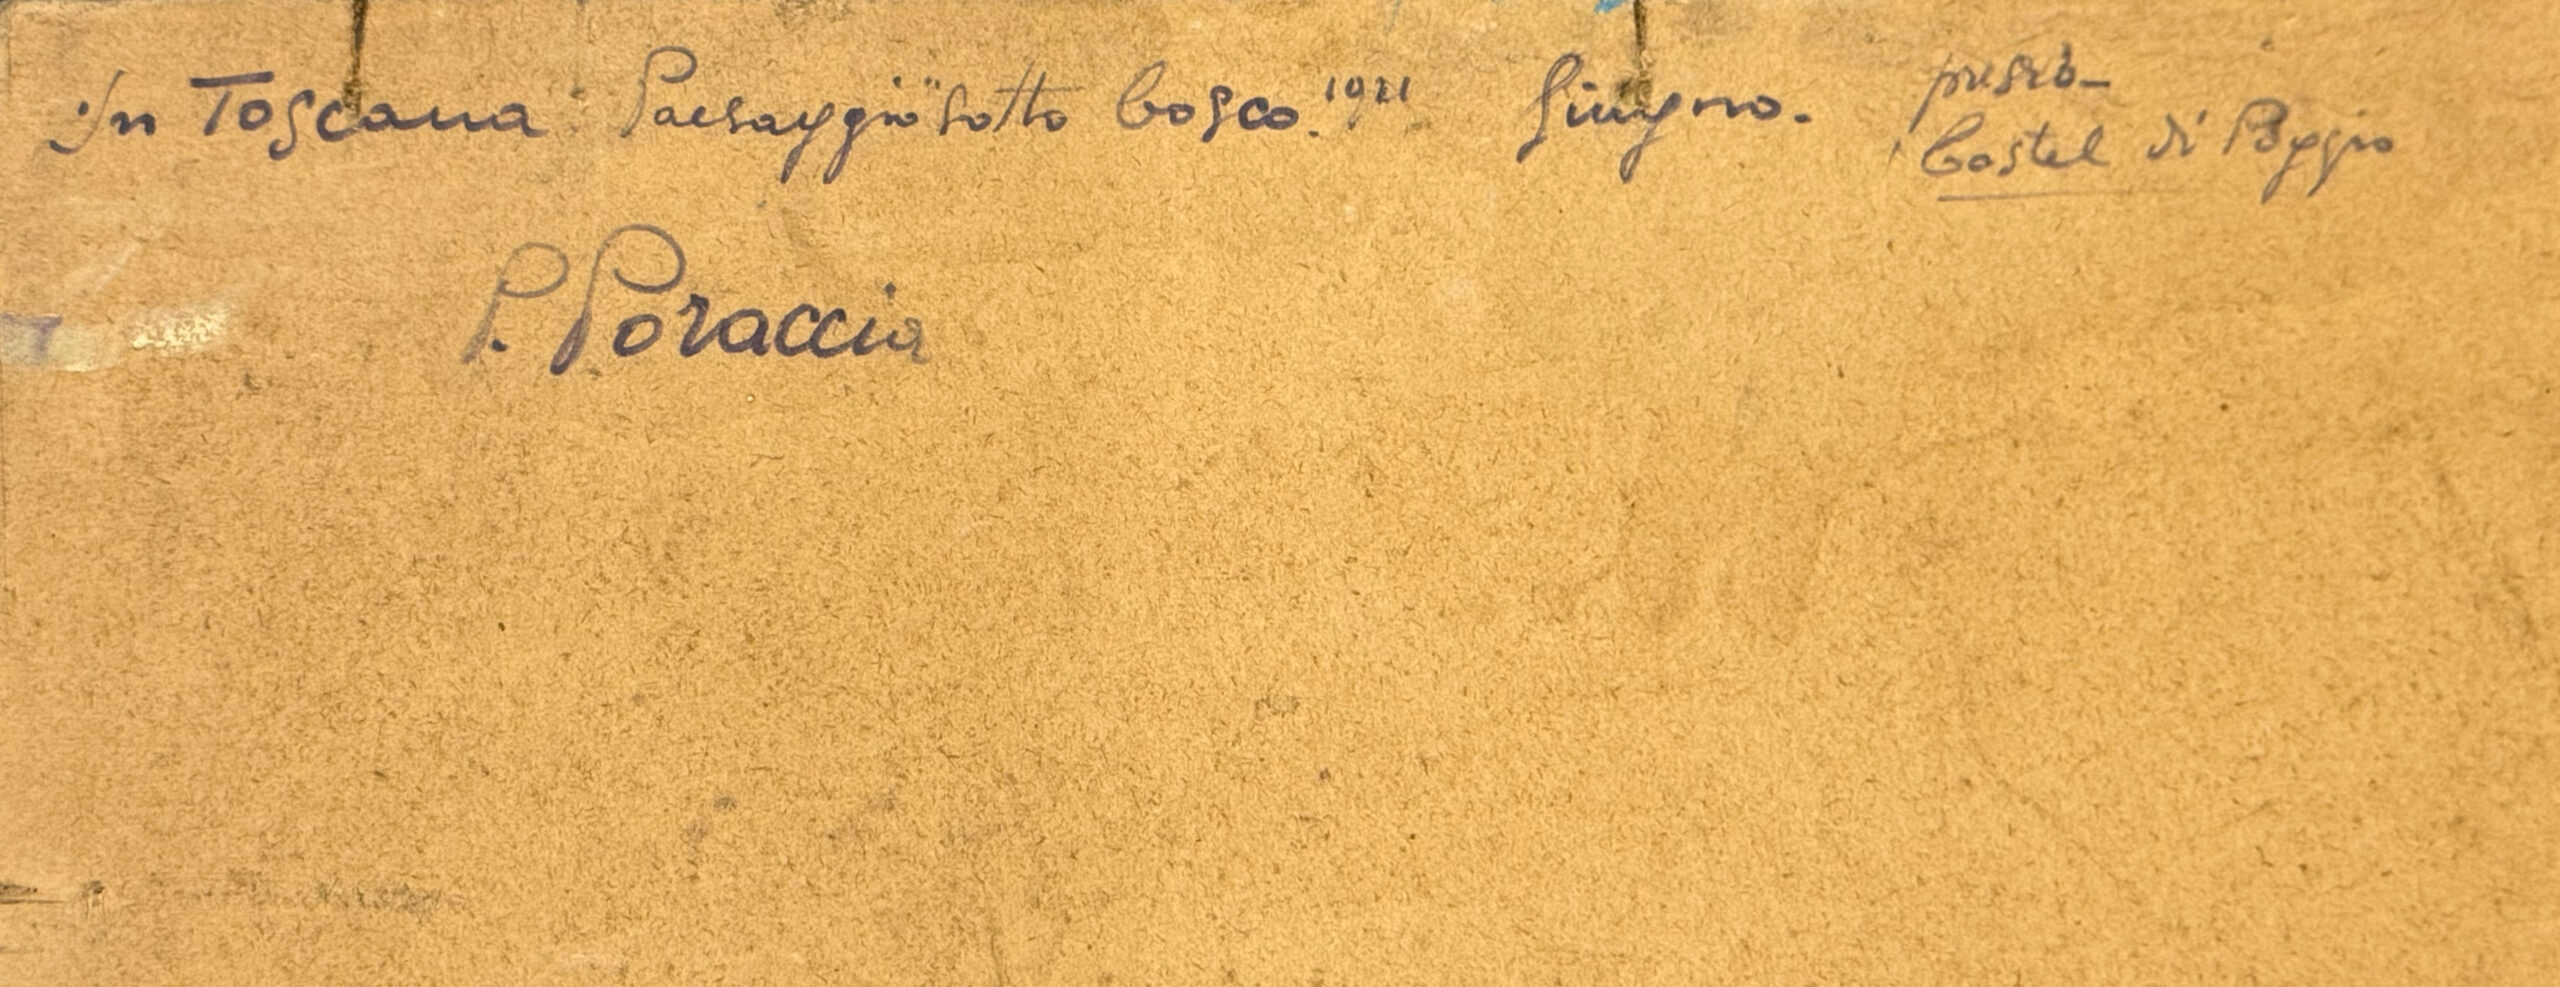 In Toscana Paesaggio "sotto bosco. 1921 Giugno. presso
Castel di Poggio
P. Poraccia